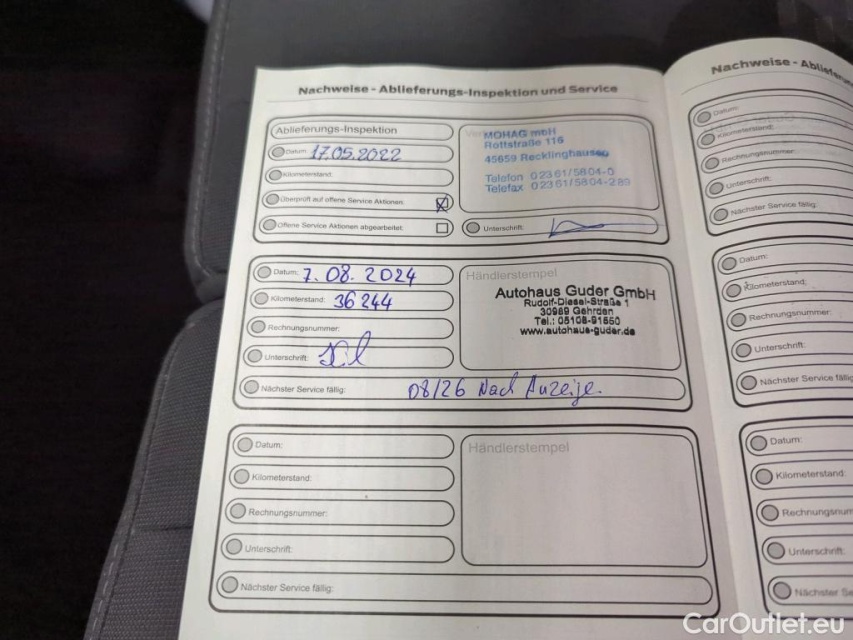 Nachweise - Ablieferungs-Inspektion und Service
Ablieferungs-Inspektion
Datum: 17.05.2022
Kilometerstand:
Überprüft auf offene Service Aktionen:
Offene Service Aktionen abgearbeitet:
MOHAG mbH
Rottstraße 116
45659 Recklinghausen
Telefon 02361/5804-0
Telefax 02361/5804-289
Unterschrift:
Datum: 7.08.2024
Kilometerstand: 36244
Rechnungsnummer:
Unterschrift:
Nächster Service fällig: 08/26 Nach Anzeige.
Händlerstempel
Autohaus Guder GmbH
Rudolf-Diesel-Straße 1
30989 Gehrden
Tel.: 05108-91650
www.autohaus-guder.de
Datum:
Kilometerstand:
Rechnungsnummer:
Unterschrift:
Nächster Service fällig:
Händlerstempel
Nachweise - Ablieferun
Datum:
Kilometerstand:
Rechnungsnummer:
Unterschrift:
Nächster Service fällig:
Datum:
Kilometerstand:
Rechnungsnummer:
Unterschrift:
Nächster Service fällig
Datum:
Kilometerstand:
Rechnungsnum
Unterschrift:
Nächster Se
CarOutlet.eu